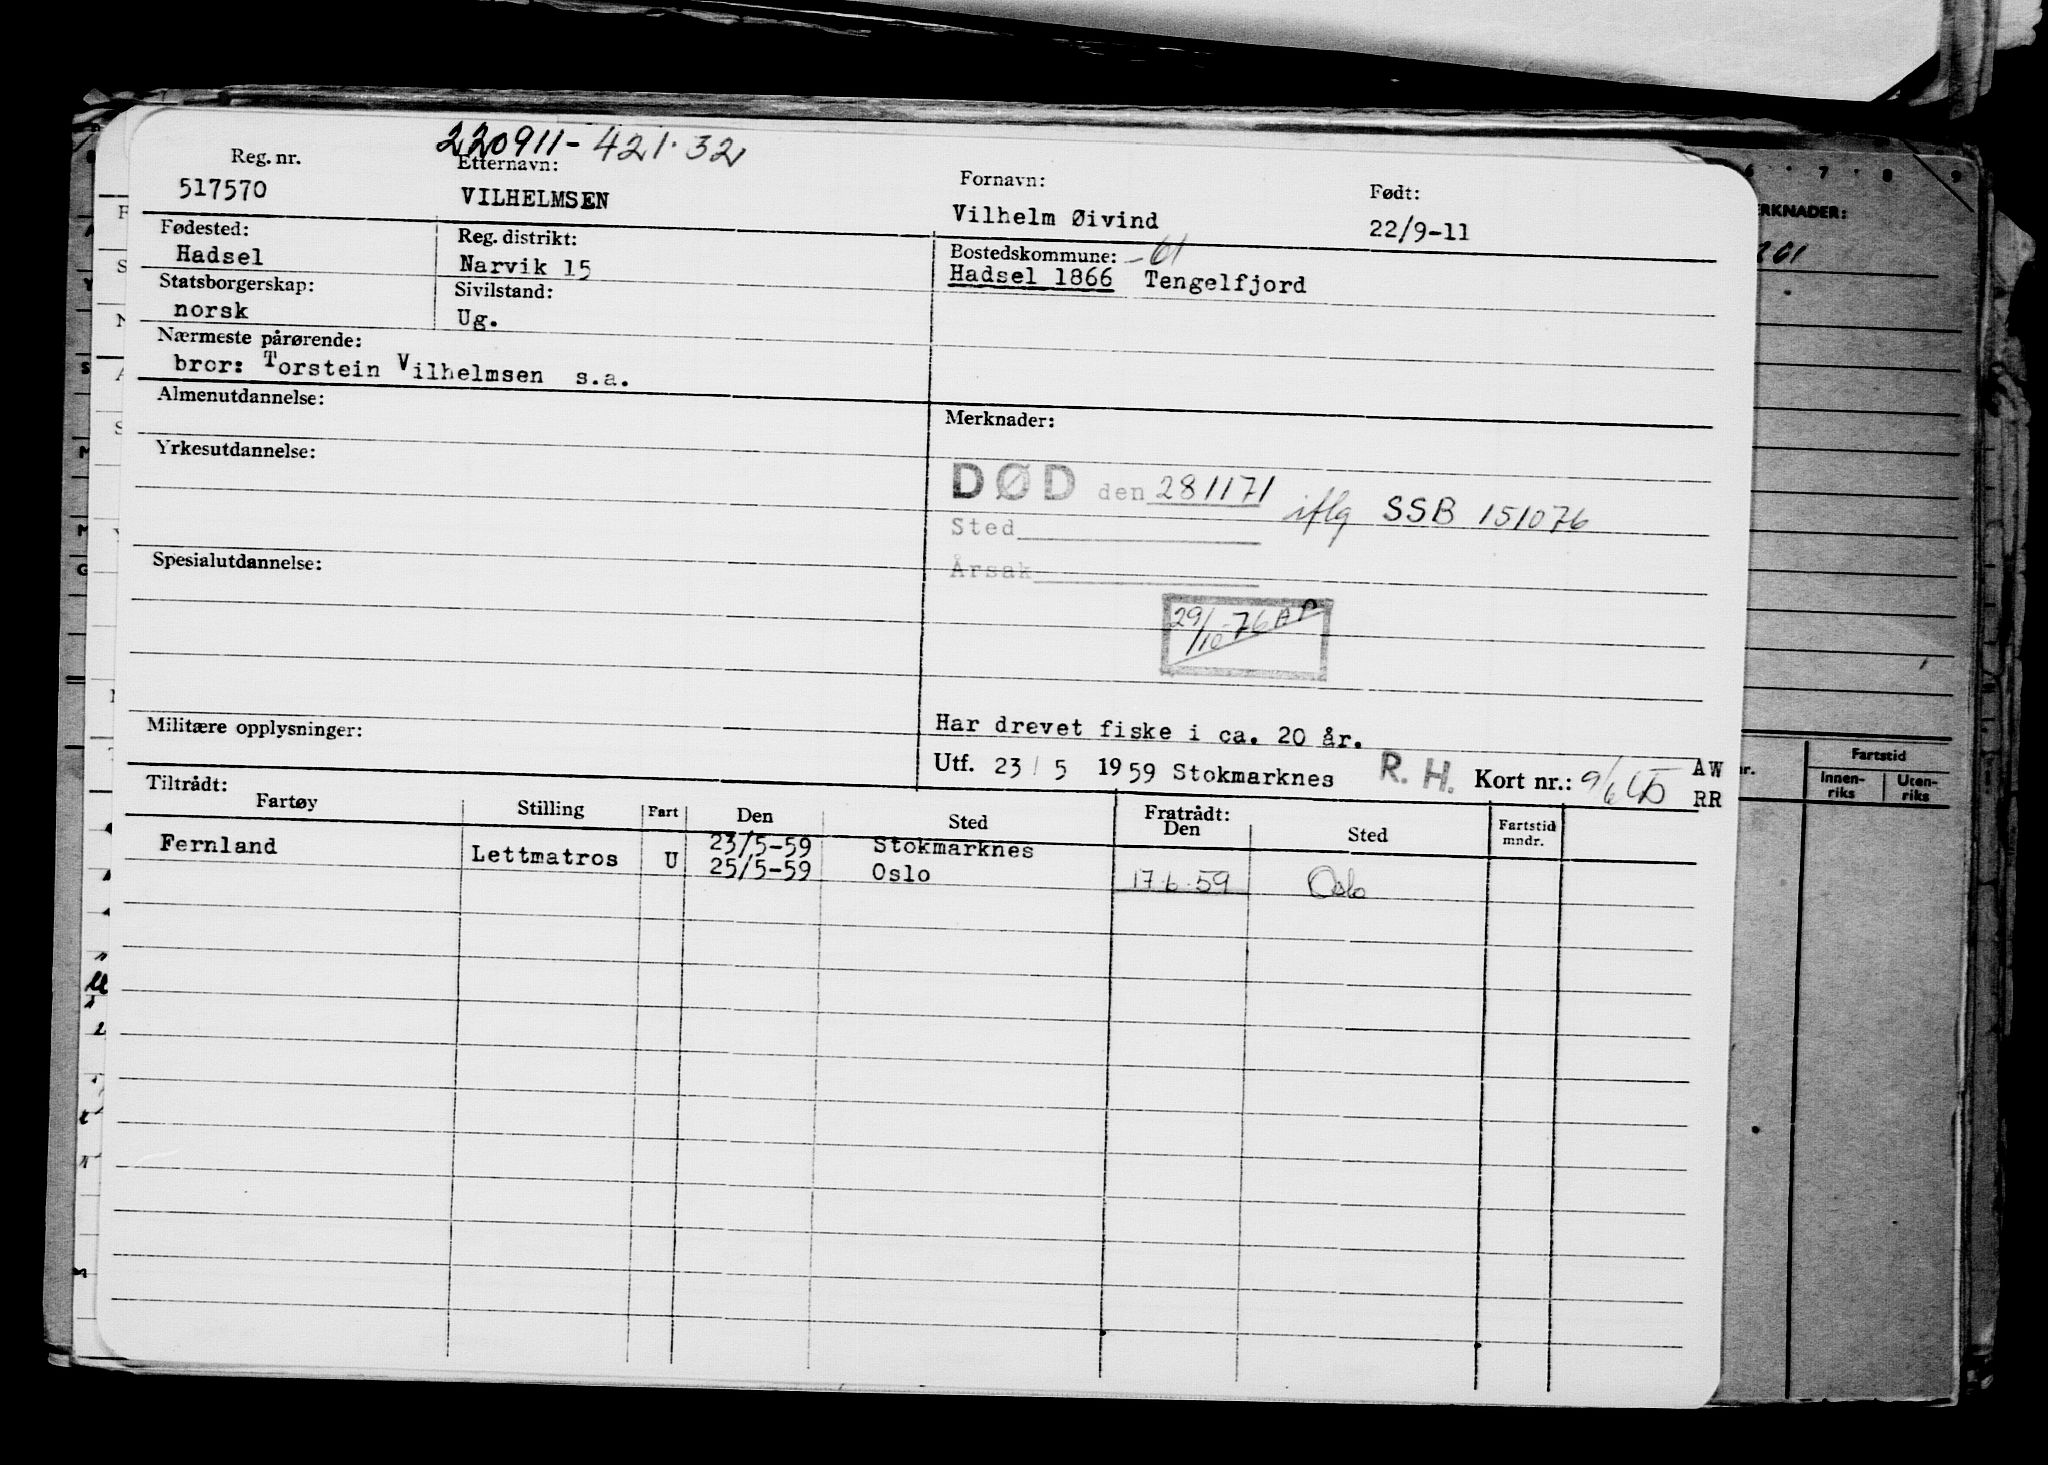 220911-421.32
Reg. nr. Etternavn: Fornavn: Født:
517570 VILHELMSEN Vilhelm Øivind 22/9-11
Fødested: Reg. distrikt: Bostedskommune: -61
Hadsel Narvik 15 Hadsel 1866 Tengelfjord
Statsborgerskap: Sivilstand:
norsk Ug.
Nærmeste pårørende:
bror: Torstein Vilhelmsen s.a.
Almenutdannelse: Merknader:
Yrkesutdannelse:
DØD den 281171 iflg SSB 151076
Sted
Årsak
Spesialutdannelse:
29/10-76 AP
Militære opplysninger: Har drevet fiske i ca. 20 år.
Utf. 23/5 1959 Stokmarknes R. H. Kort nr.: AW
RR
Tiltrådt: Fratrådt:
Fartøy Stilling Fart Den Sted Den Sted Fartstid mndr.
Fernland Lettmatros U 23/5-59 Stokmarknes
25/5-59 Oslo 17.6.59 Oslo
6 7 8 9
ERKNADER:
261
nr. Fartstid
Innen-riks Uten-riks